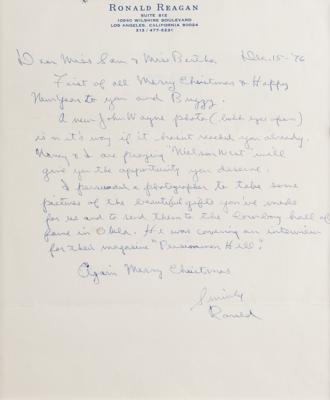 RONALD REAGAN
SUITE 812
10960 WILSHIRE BOULEVARD
LOS ANGELES, CALIFORNIA 90024
213 / 477-8231
Dear Miss Sam & Miss Bertha Dec. 15 - '76
First of all Merry Christmas & Happy
New Year to you and Buzzy.
A new John Wayne photo (both eyes open)
is on it's way if it hasnt reached you already.
Nancy & I are praying "Nielson West" will
give you the opportunity you deserve.
I persuaded a photographer to take some
pictures of the beautiful gifts you've made
for us and to send them to the Cowboy hall of
fame in Okla. He was covering an interview
for their magazine "Persimmon Hill".
Again Merry Christmas
Sincerely
Ronald